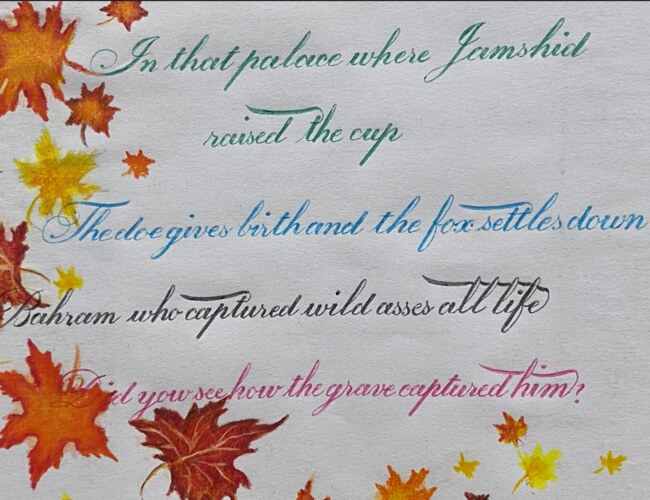 In that palace where Jamshid
raised the cup
The doe gives birth and the fox settles down
Bahram who captured wild asses all life
Did you see how the grave captured him?